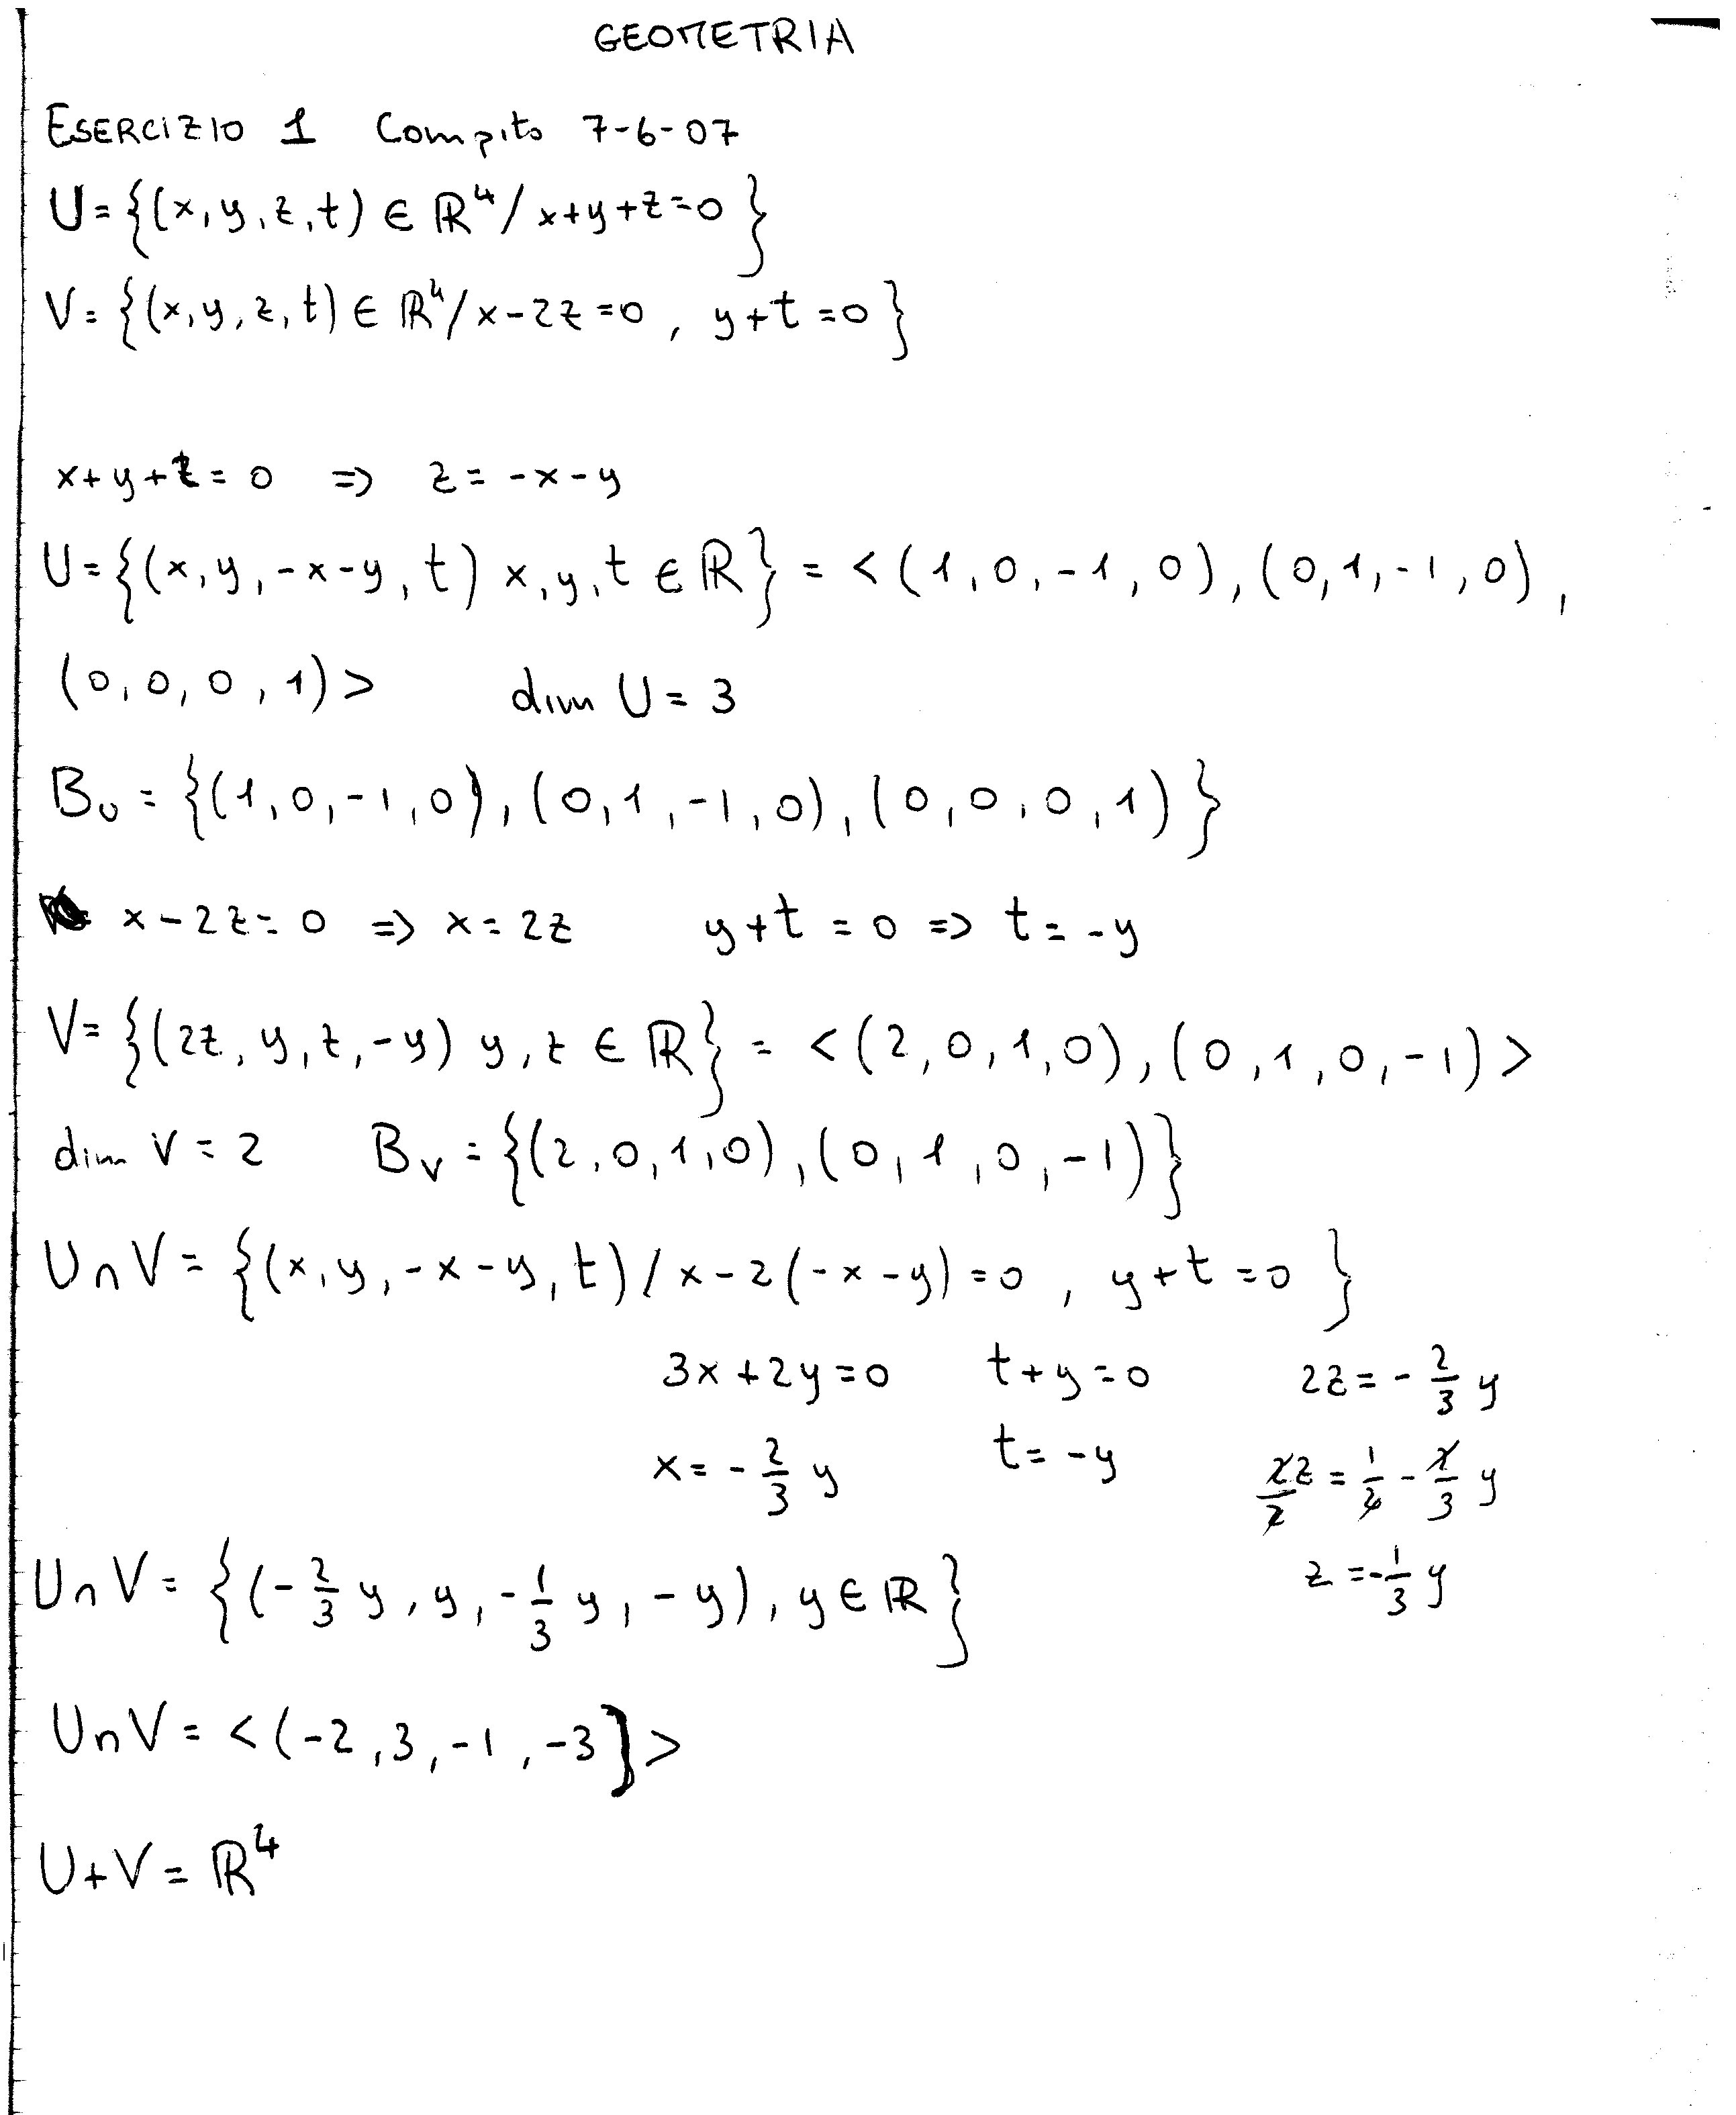 GEOMETRIA
ESERCIZIO 1 Compito 7-6-07
U={(x,y,z,t) ∈ ℝ⁴/ x+y+z=0}
V={(x,y,z,t) ∈ ℝ⁴/x-2z=0, y+t=0}
x+y+z=0 ⇒ z=-x-y
U={(x,y,-x-y,t) x,y,t ∈ ℝ} = <(1,0,-1,0),(0,1,-1,0),
(0,0,0,1)> dim U=3
B_U={(1,0,-1,0),(0,1,-1,0),(0,0,0,1)}
x-2z=0 ⇒ x=2z y+t=0 ⇒ t=-y
V={(2z,y,z,-y) y,z ∈ ℝ} = <(2,0,1,0),(0,1,0,-1)>
dim V=2 B_V={(2,0,1,0),(0,1,0,-1)}
U∩V={(x,y,-x-y,t)/x-2(-x-y)=0, y+t=0}
3x+2y=0 t+y=0 2z=-2/3 y
x=-2/3 y t=-y 2z/2=1/2 -2/3 y
U∩V={(-2/3 y,y,-1/3 y,-y), y∈ℝ} z=-1/3 y
U∩V=<(-2,3,-1,-3)>
U+V=ℝ⁴